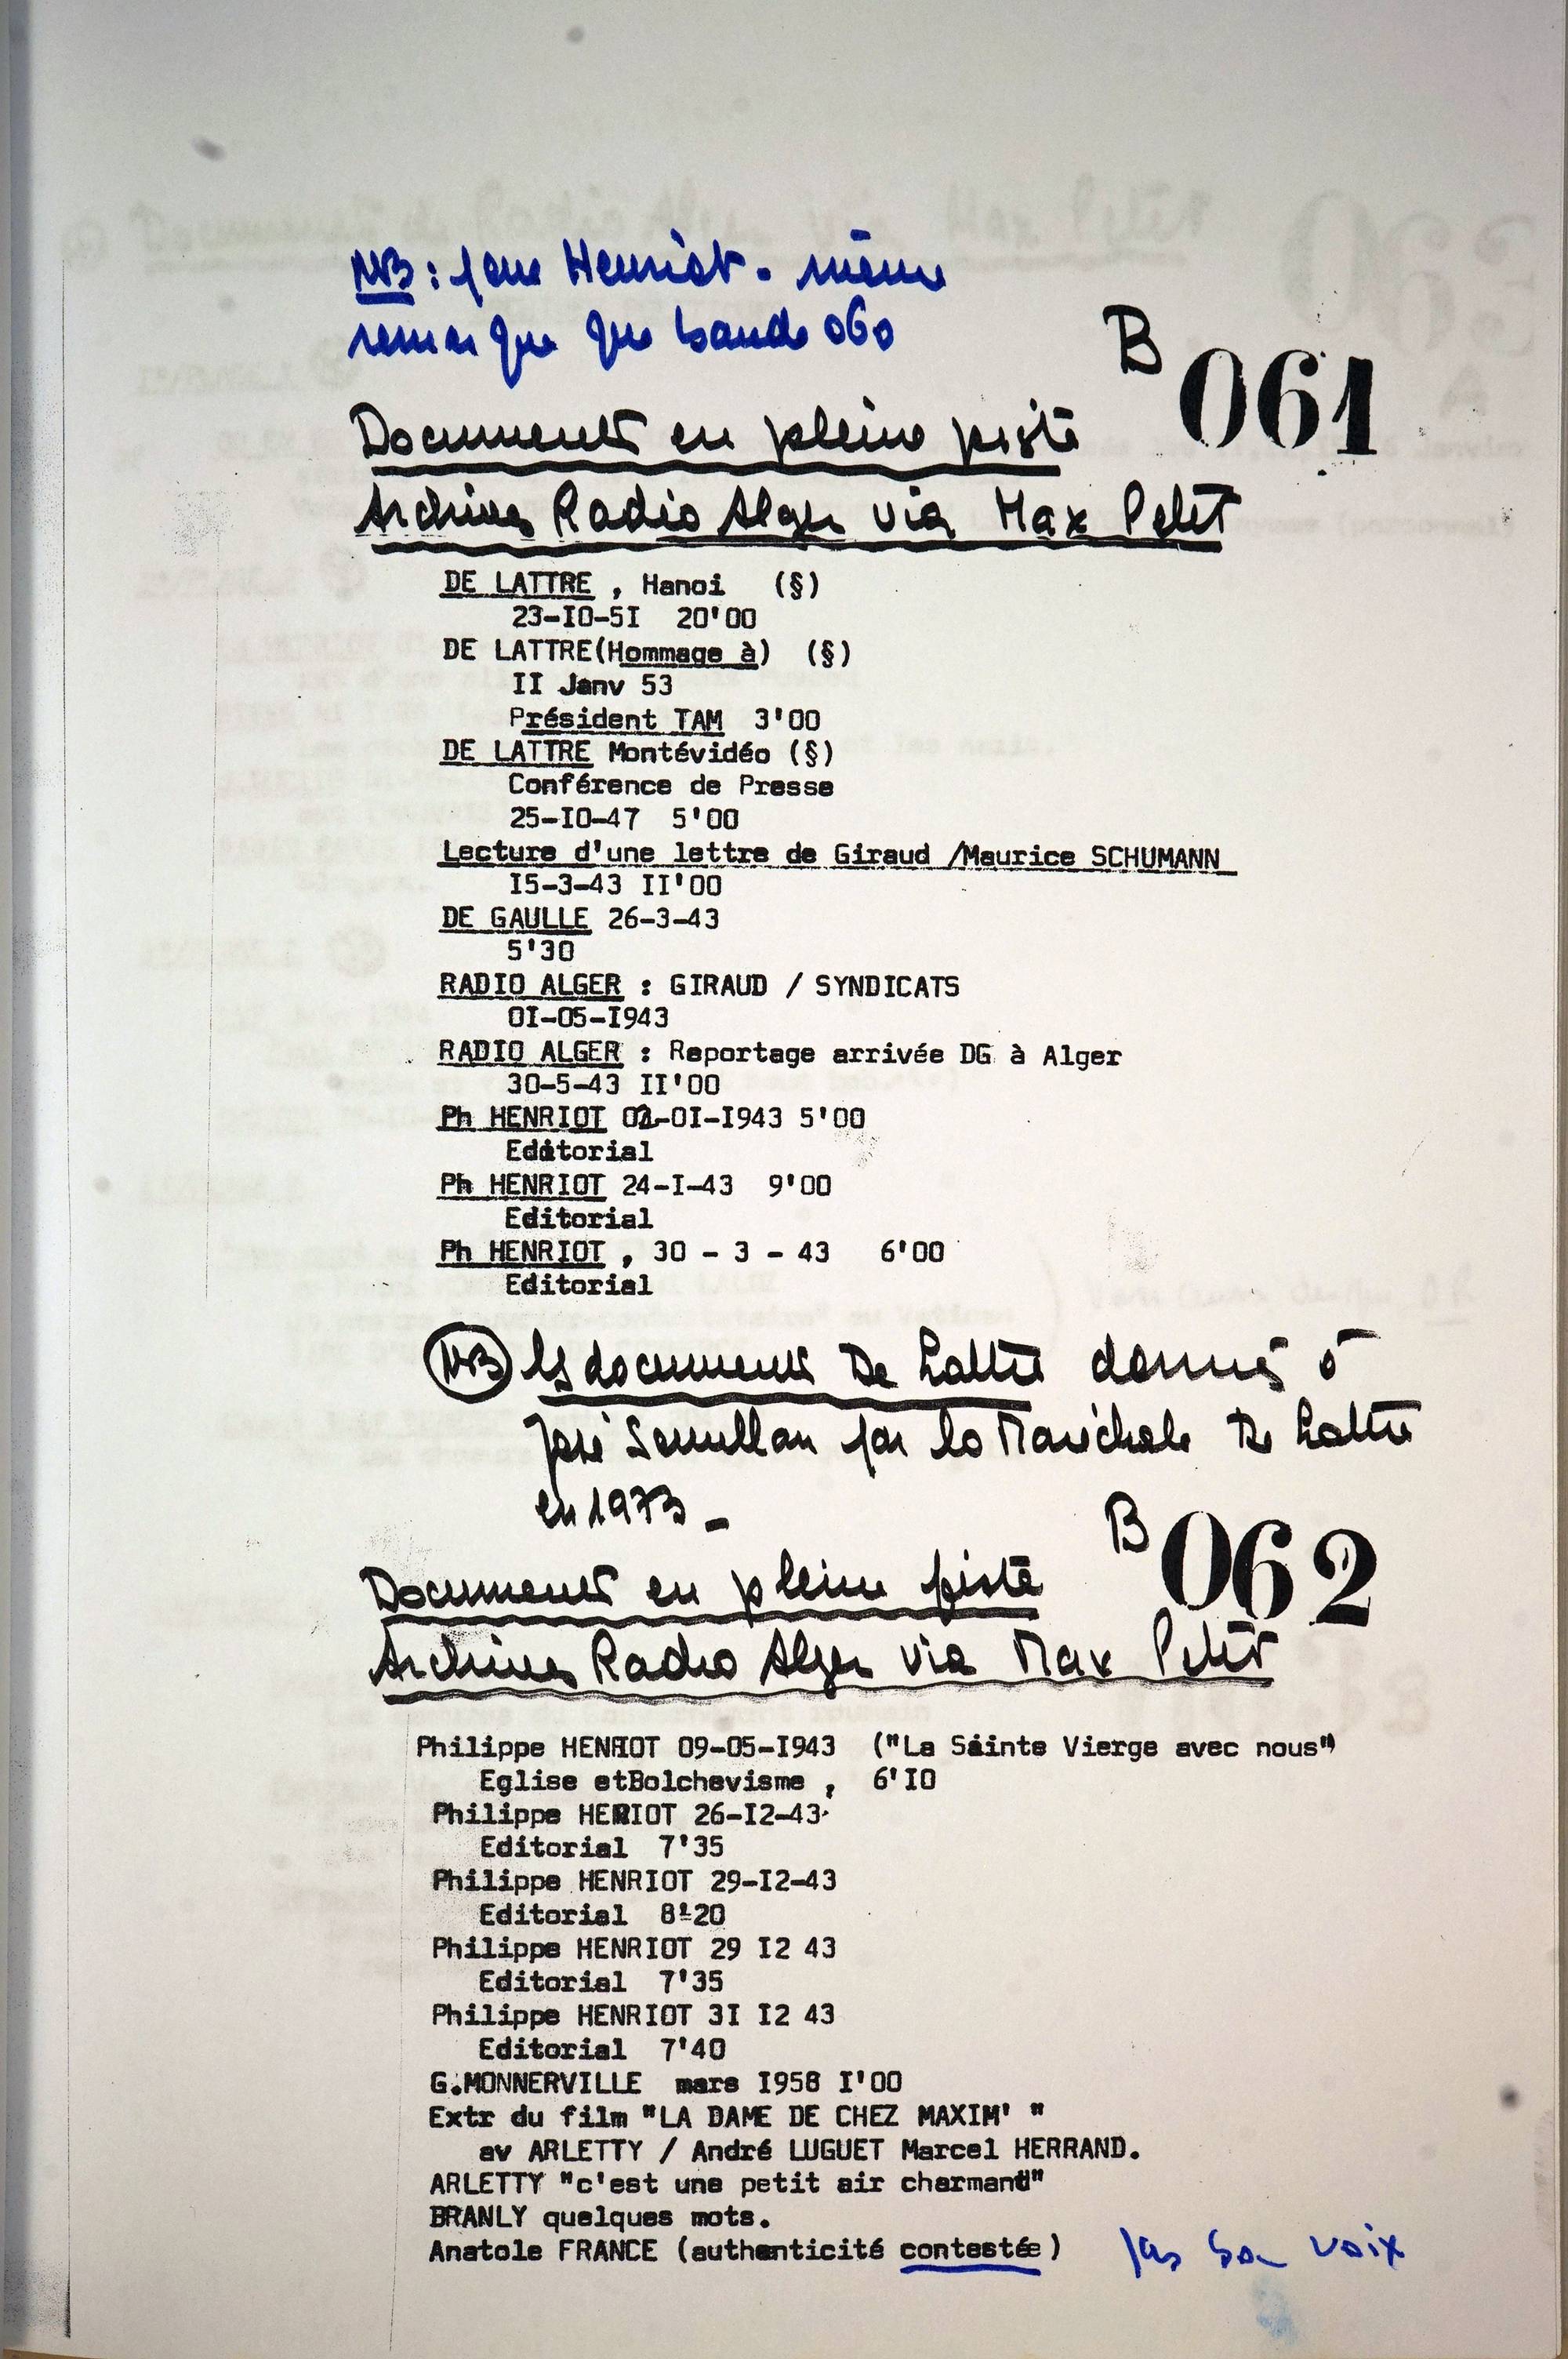 NB : pour Henriot - même
remarque que bande 060
B 061
Documents en pleine piste
Archives Radio Alger via Max Petit
DE LATTRE , Hanoi (§)
23-IO-5I 20'00
DE LATTRE(Hommage à) (§)
II Janv 53
Président TAM 3'00
DE LATTRE Montévidéo (§)
Conférence de Presse
25-IO-47 5'00
Lecture d'une lettre de Giraud /Maurice SCHUMANN
I5-3-43 II'00
DE GAULLE 26-3-43
5'30
RADIO ALGER : GIRAUD / SYNDICATS
OI-05-I943
RADIO ALGER : Reportage arrivée DG à Alger
30-5-43 II'00
Ph HENRIOT -OI-I943 5'00
Editorial
Ph HENRIOT 24-I-43 9'00
Editorial
Ph HENRIOT , 30 - 3 - 43 6'00
Editorial
NB les documents De Lattre donnés à
José par la Maréchale De Lattre
en 1973 -
B 062
Documents en pleine piste
Archives Radio Alger via Max Petit
Philippe HENRIOT 09-05-I943 ("La Sainte Vierge avec nous")
Eglise etBolchevisme , 6'IO
Philippe HERIOT 26-I2-43
Editorial 7'35
Philippe HENRIOT 29-I2-43
Editorial 8'20
Philippe HENRIOT 29 I2 43
Editorial 7'35
Philippe HENRIOT 3I I2 43
Editorial 7'40
G.MONNERVILLE mars I958 I'00
Extr du film "LA DAME DE CHEZ MAXIM' "
av ARLETTY / André LUGUET Marcel HERRAND.
ARLETTY "c'est une petit air charmant"
BRANLY quelques mots.
Anatole FRANCE (authenticité contestée) pas sa voix